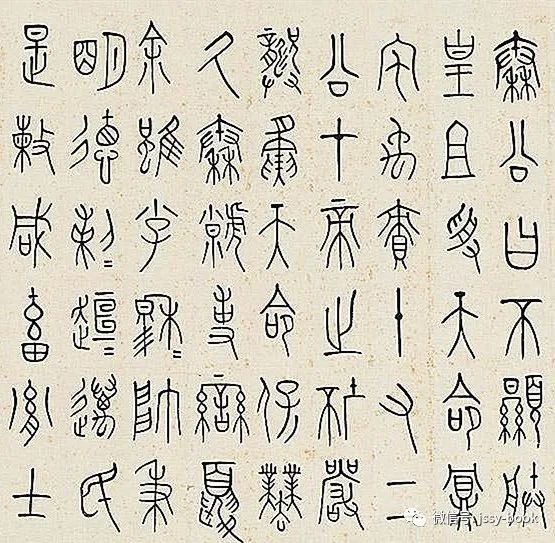 秦公曰不顯朕
皇且受天命鼏
宅禹賷十又二
公在帝之坯嚴
龏夤天命保業
厥秦虩事蠻夏
余雖小子穆=帥秉
明德剌=趄=邁民
是敕咸畜胤士
微信号: jssy-book